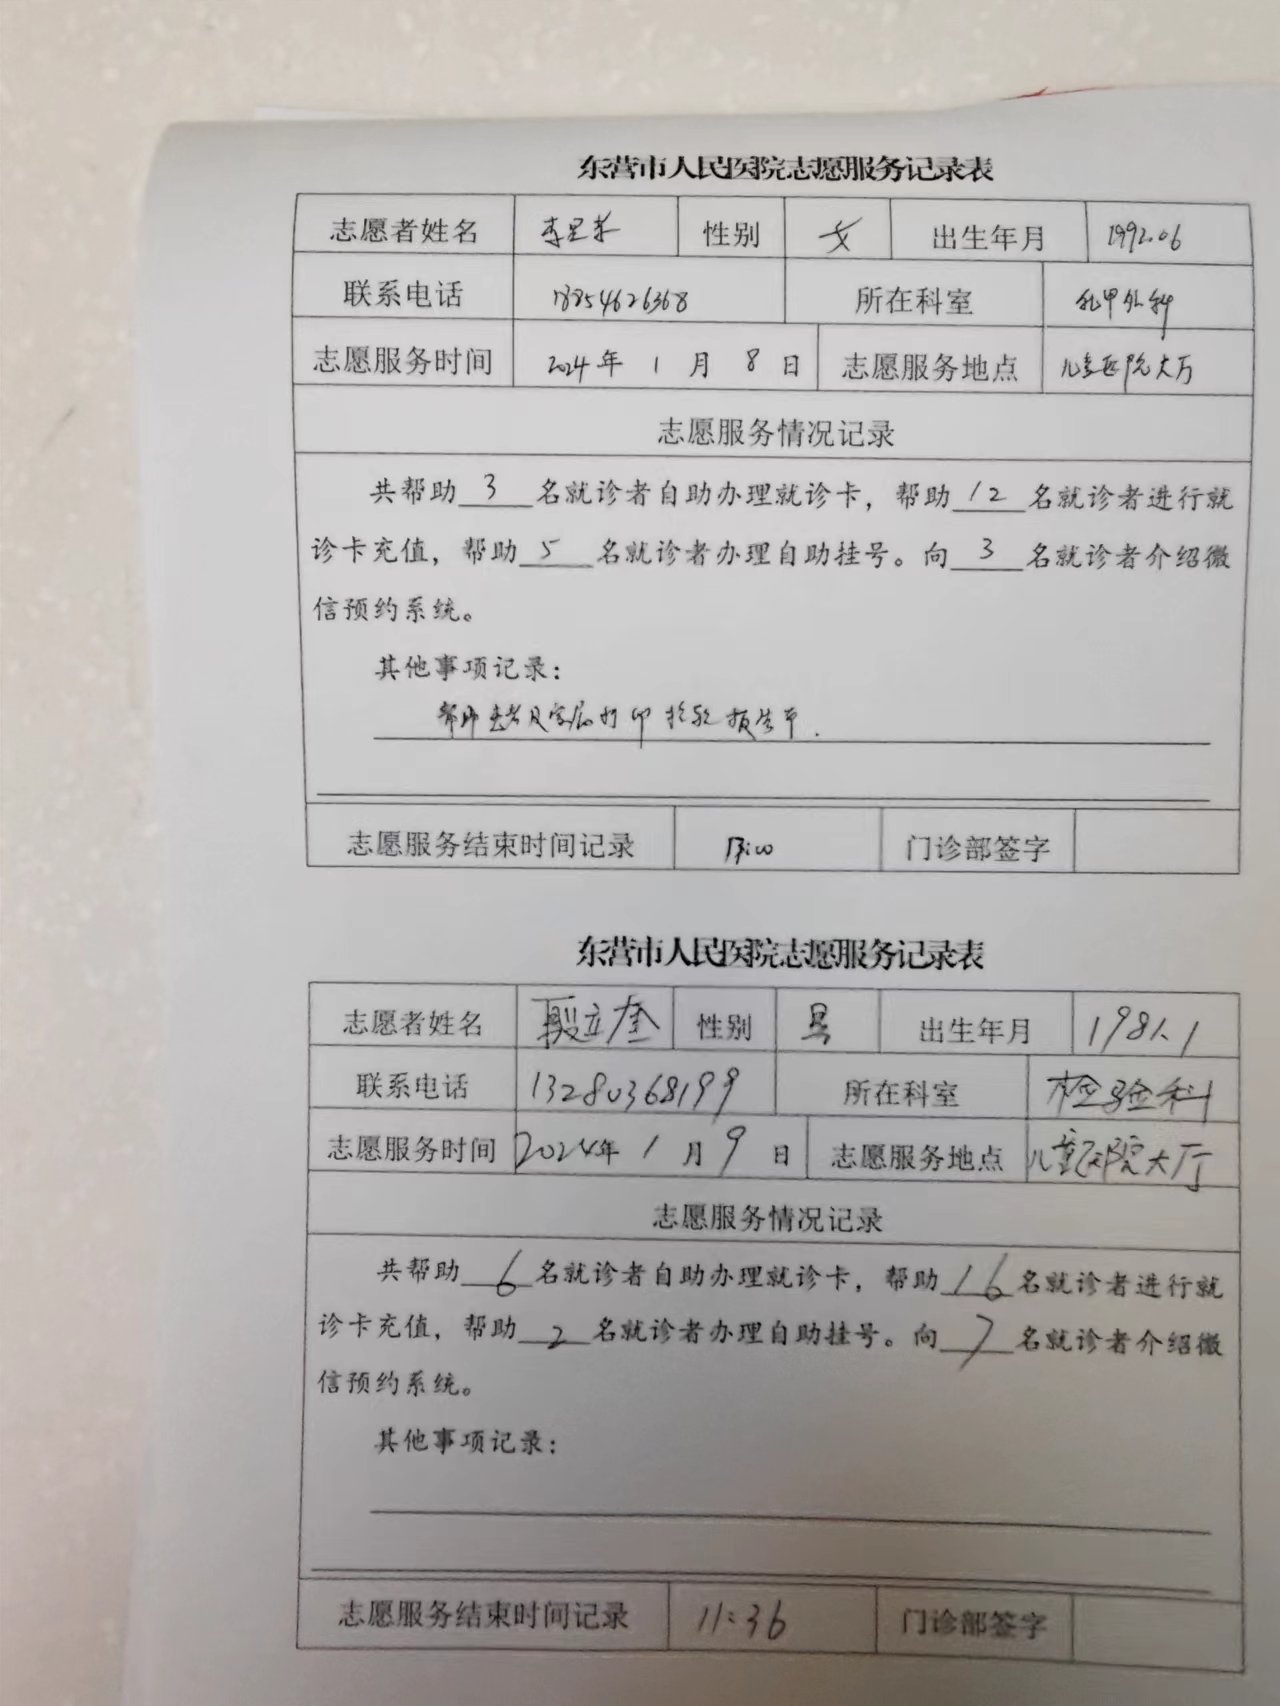 东营市人民医院志愿服务记录表
志愿者姓名 性别 女 出生年月 1992.06
联系电话 18854626368 所在科室 乳甲外科
志愿服务时间 2024年 1 月 8 日 志愿服务地点 儿童医院大厅
志愿服务情况记录
共帮助 3 名就诊者自助办理就诊卡，帮助 12 名就诊者进行就
诊卡充值，帮助 5 名就诊者办理自助挂号。向 3 名就诊者介绍微
信预约系统。
其他事项记录：
帮助患者及家属打印检验报告单.
志愿服务结束时间记录 门诊部签字
东营市人民医院志愿服务记录表
志愿者姓名 段立奎 性别 男 出生年月 1981.1
联系电话 13280368199 所在科室 检验科
志愿服务时间 2024年 1 月 9 日 志愿服务地点 儿童医院大厅
志愿服务情况记录
共帮助 6 名就诊者自助办理就诊卡，帮助 16 名就诊者进行就
诊卡充值，帮助 2 名就诊者办理自助挂号。向 7 名就诊者介绍微
信预约系统。
其他事项记录：
志愿服务结束时间记录 11:36 门诊部签字